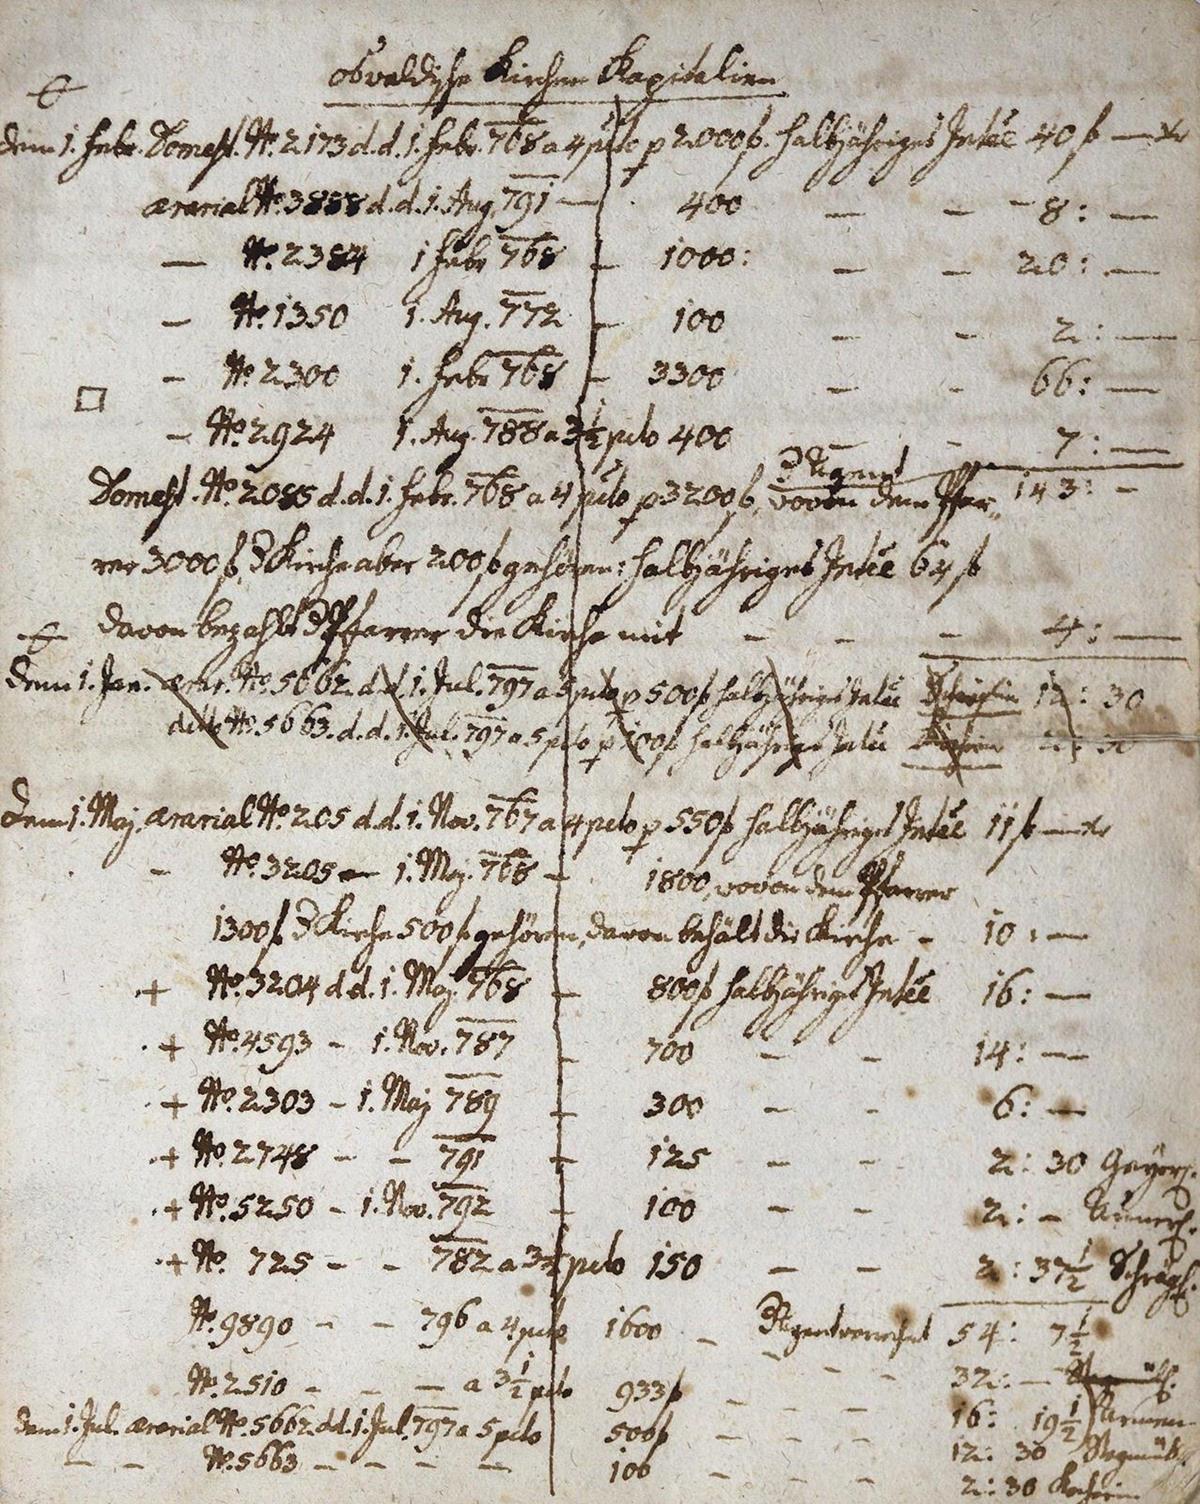 Osvaldische Kirchen Kapitalien
Dem 1. Febr. Domest. No. 2173 d. d. 1. Febr. 768 a 4 pcto p 2000 f. halbjähriges Intée 40 f — xr
ærarial No. 3888 d. d. 1. Aug. 791 — 400 — — 8 : —
— No. 2384 1 Febr 768 — 1000 : — — 20 : —
— No. 1350 1. Aug. 772 — 100 — — 2 : —
— No. 2300 1. Febr 768 — 3300 — — 66 : —
— No. 2924 1. Aug. 788 a 3 1/2 pcto 400 — — 7 : —
Domest. No. 2085 d. d. 1. Febr. 768 a 4 pcto p 3200 f, wovon dem Pfar- 143 : —
rer 3000 f, d Kirche aber 200 f gehören : halbjähriges Intée 64 f
davon bezahlt d Pfarrer die Kirche mit — — — 4 : —
Dem 1. Jan. ærar. No. 5662 d. d. 1. Jul. 797 a 5 pcto p 500 f halbjähriges Intée 12 : 30
detto No. 5663. d. d. 1. Jul. 797 a 5 pcto p 100 f halbjähriges Intée 2 : 30
Dem 1. Maj. ærarial No. 205 d. d. 1. Nov. 767 a 4 pcto p 550 f halbjähriges Intée 11 f — xr
— No. 3205 — 1. Maj. 768 — 1800, wovon dem Pfarrer
1300 f d Kirche 500 f gehören, davon behält die Kirche — 10 : —
+ No. 3204 d d. 1. Maj. 768 — 800 f halbjähriges Intée 16 : —
+ No. 4593 — 1. Nov. 787 — 700 — — 14 : —
+ No. 2303 — 1. Maj 789 — 300 — — 6 : —
+ No. 2748 — — 791 — 125 — — 2 : 30
+ No. 5250 — 1. Nov. 792 — 100 — — 2 : —
+ No. 725 — — 782 a 3 1/2 pcto 150 — — 2 : 37 1/2
No. 9890 — — 796 a 4 pcto 1600 — 54 : 7 1/2
No. 2510 — — — a 3 1/2 pcto 933 f — — — 32 : —
Dem 1. Jul. ærarial No. 5662 d d. 1. Jul. 797 a 5 pcto 500 f — — — 16 : 19 1/2
— — No. 5663 — — — — 100 — — — 12 : 30
2 : 30